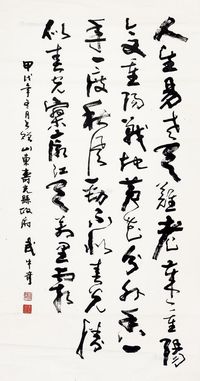 人生易老天難老歲々重陽
今又重陽戰地黃花分外香一
年一度秋風勁不似春光勝
似春光寥廓江天萬里霜
甲戌年 月書於山東壽光縣政府 武中奇